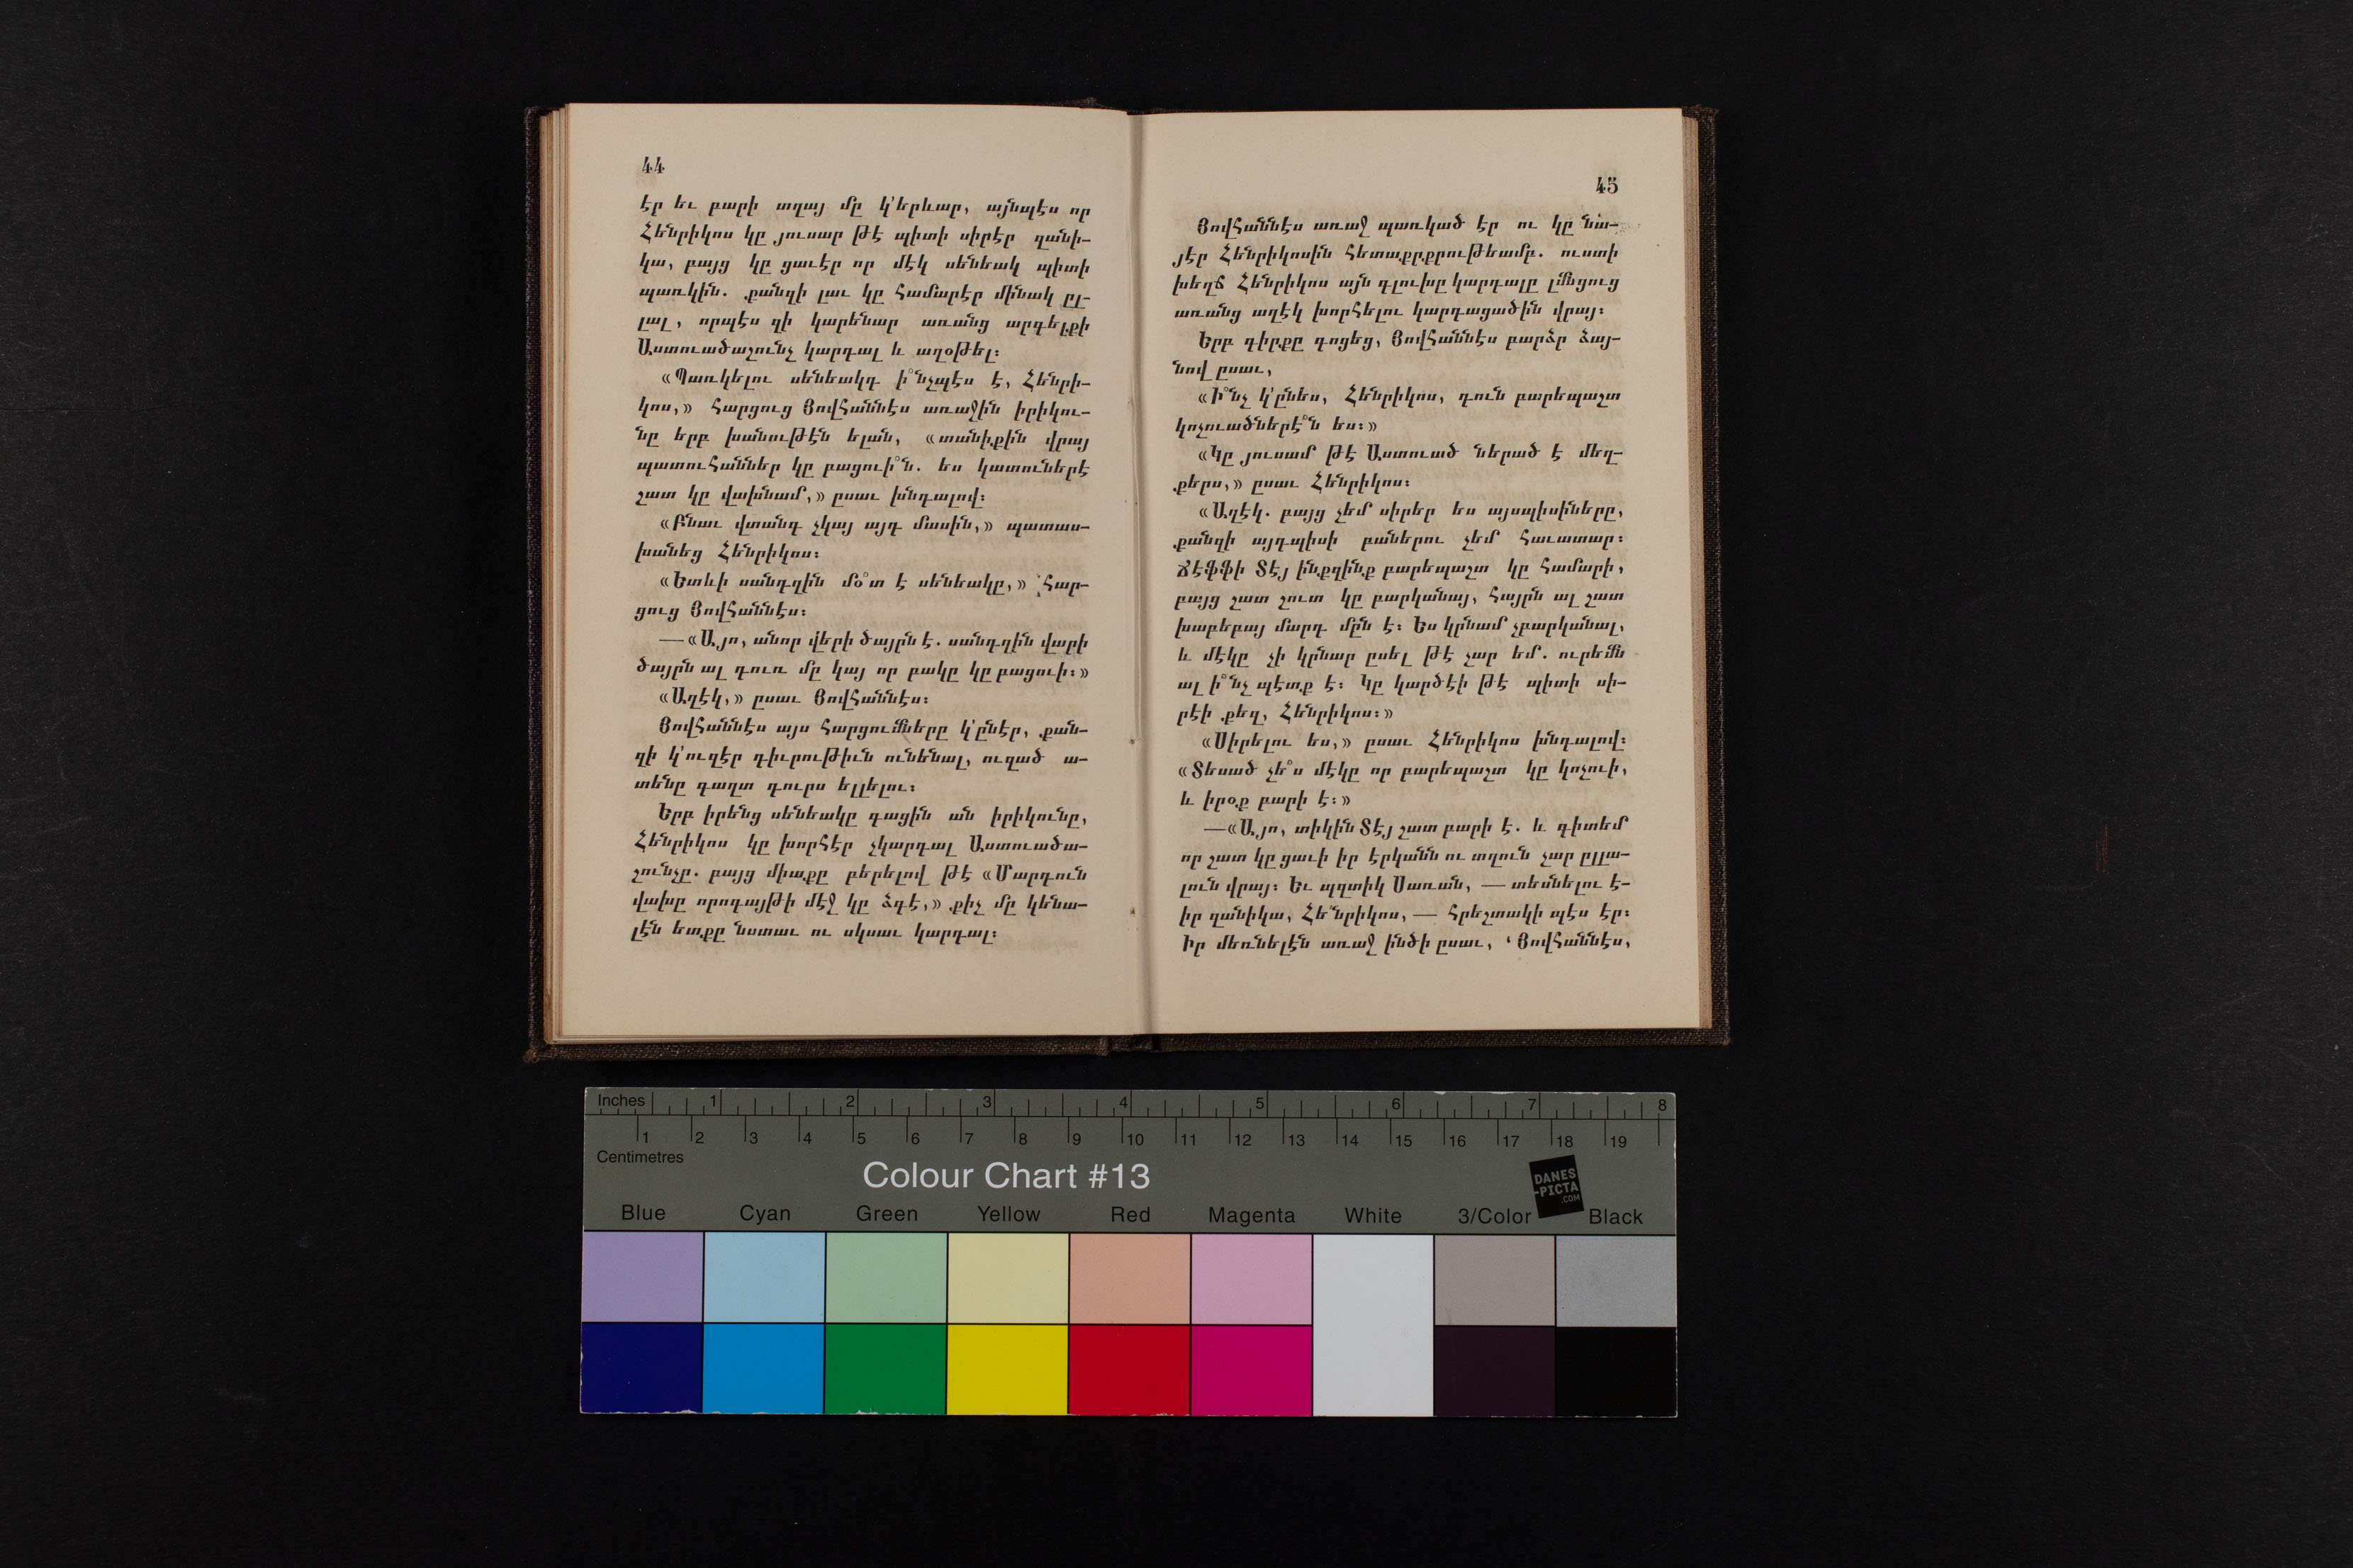 44
էր եւ բարի տղայ մը կ'երևար, այնպէս որ
Հենրիկոս կը յուսար թէ պիտի սիրէր զանի-
կա, բայց կը ցաւէր որ մէկ սենեակ պիտի
պառկին. քանզի լաւ կը համարէր մինակ ըլ-
լալ, որպէս զի կարենար առանց արգելքի
Աստուածաշունչ կարդալ և աղօթել։
«Պառկելու սենեակդ ի՞նչպէս է, Հենրի-
կոս,» հարցուց Յովհաննէս առաջին իրիկու-
նը երբ խանութէն ելան, «տանիքին վրայ
պատուհաններ կը բացուի՞ն. ես կատուներէ
շատ կը վախնամ,» ըսաւ խնդալով։
«Բնաւ վտանգ չկայ այդ մասին,» պատաս-
խանեց Հենրիկոս։
«Ետևի սանդղին մօ՞տ է սենեակը,» հար-
ցուց Յովհաննէս։
—«Այո, անոր վերի ծայրն է. սանդղին վարի
ծայրն ալ դուռ մը կայ որ բակը կը բացուի։»
«Աղէկ,» ըսաւ Յովհաննէս։
Յովհաննէս այս հարցումները կ'ընէր, քան-
զի կ'ուզէր դիւրութիւն ունենալ, ուզած ա-
տենը գաղտ դուրս ելլելու։
Երբ իրենց սենեակը գացին ան իրիկունը,
Հենրիկոս կը խորհէր չկարդալ Աստուածա-
շունչը. բայց միտքը բերելով թէ «Մարդուն
վախը որոգայթի մէջ կը ձգէ,» քիչ մը կենա-
լէն ետքը նստաւ ու սկսաւ կարդալ։
45
Յովհաննէս առաջ պառկած էր ու կը նա-
յէր Հենրիկոսին հետաքրքրութեամբ. ուստի
խեղճ Հենրիկոս այն գլուխը կարդալը լմնցուց
առանց աղէկ խորհելու կարդացածին վրայ։
Երբ գիրքը գոցեց, Յովհաննէս բարձր ձայ-
նով ըսաւ,
«Ի՞նչ կ'ընես, Հենրիկոս, դուն բարեպաշտ
կոչուածներէ՞ն ես։»
«Կը յուսամ թէ Աստուած ներած է մեղ-
քերս,» ըսաւ Հենրիկոս։
«Աղէկ. բայց չեմ սիրեր ես այսպիսիները,
քանզի այդպիսի բաներու չեմ հաւատար։
Ճէֆֆի Տէյ ինքզինք բարեպաշտ կը համարի,
բայց շատ շուտ կը բարկանայ, հայրն ալ շատ
խաբեբայ մարդ մըն է։ Ես կրնամ չբարկանալ,
և մէկը չի կրնար ըսել թէ չար եմ. ուրեմն
ալ ի՞նչ պէտք է։ Կը կարծէի թէ պիտի սի-
րէի քեզ, Հենրիկոս։»
«Սիրելու ես,» ըսաւ Հենրիկոս խնդալով։
«Տեսած չե՞ս մէկը որ բարեպաշտ կը կոչուի,
և իրօք բարի է։»
—«Այո, տիկին Տէյ շատ բարի է. և գիտեմ
որ շատ կը ցաւի իր էրկանն ու տղուն չար ըլլա-
լուն վրայ։ Եւ պզտիկ Սառան, — տեսնելու է-
իր զանիկա, Հե՜նրիկոս, — հրեշտակի պէս էր։
Իր մեռնելէն առաջ ինծի ըսաւ, ‘Յովհաննէս,
Inches 1 2 3 4 5 6 7 8
1 2 3 4 5 6 7 8 9 10 11 12 13 14 15 16 17 18 19
Centimetres
Colour Chart #13
DANES
-PICTA
.COM
Blue Cyan Green Yellow Red Magenta White 3/Color Black